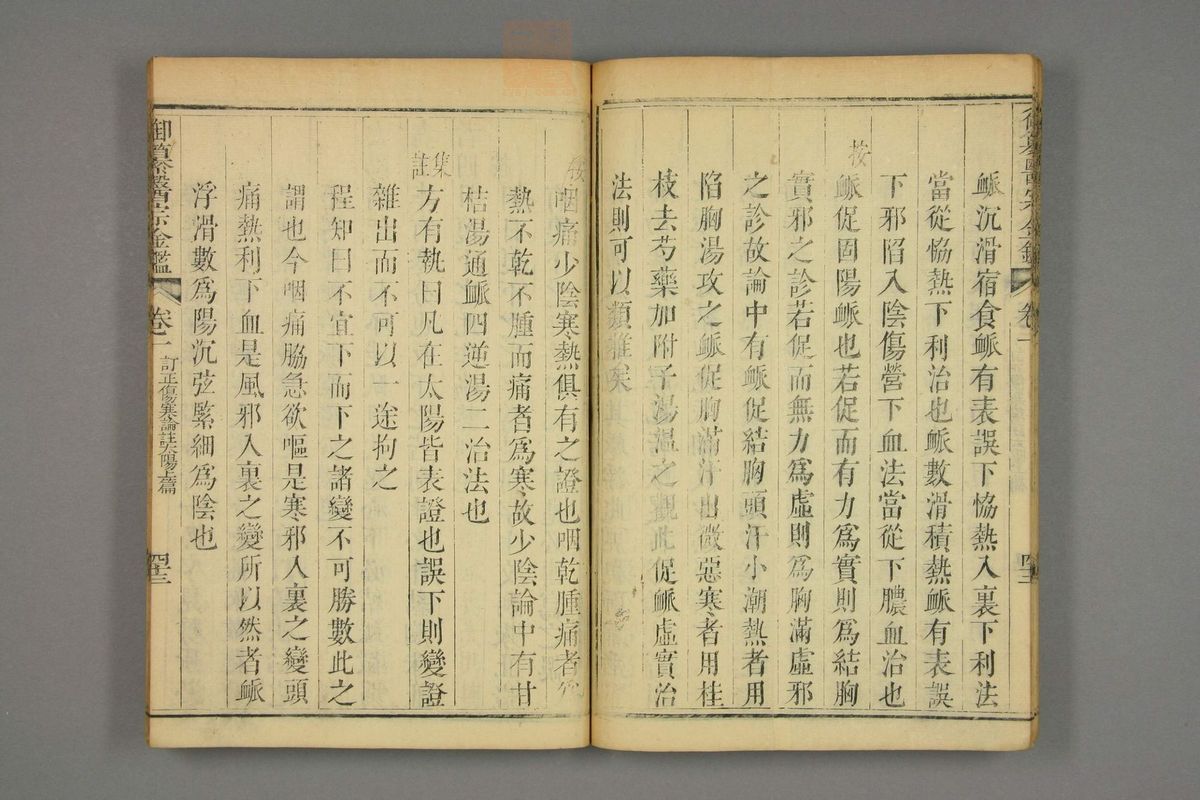 脈沉滑宿食脈有表誤下恊熱入裏下利法
當從恊熱下利治也脈數滑積熱脈有表誤
下邪陷入陰傷營下血法當從下膿血治也
按
脈促固陽脈也若促而有力爲實則爲結胸
實邪之診若促而無力爲虛則爲胸滿虛邪
之診故論中有脈促結胸頭汗小潮熱者用
陷胸湯攻之脈促胸滿汗出微惡寒者用桂
枝去芍藥加附子湯溫之觀此促脈虛實治
法則可以類推矣
按
咽痛少陰寒熱俱有之證也咽乾腫痛者爲
熱不乾不腫而痛者爲寒故少陰論中有甘
桔湯通脈四逆湯二治法也
集註
方有執曰凡在太陽皆表證也誤下則變證
雜出而不可以一途拘之
程知曰不宜下而下之諸變不可勝數此之
謂也今咽痛脇急欲嘔是寒邪入裏之變頭
痛熱利下血是風邪入裏之變所以然者脈
浮滑數爲陽沉弦緊細爲陰也
御纂醫宗金鑑
卷一
訂正傷寒論註太陽上篇
四三